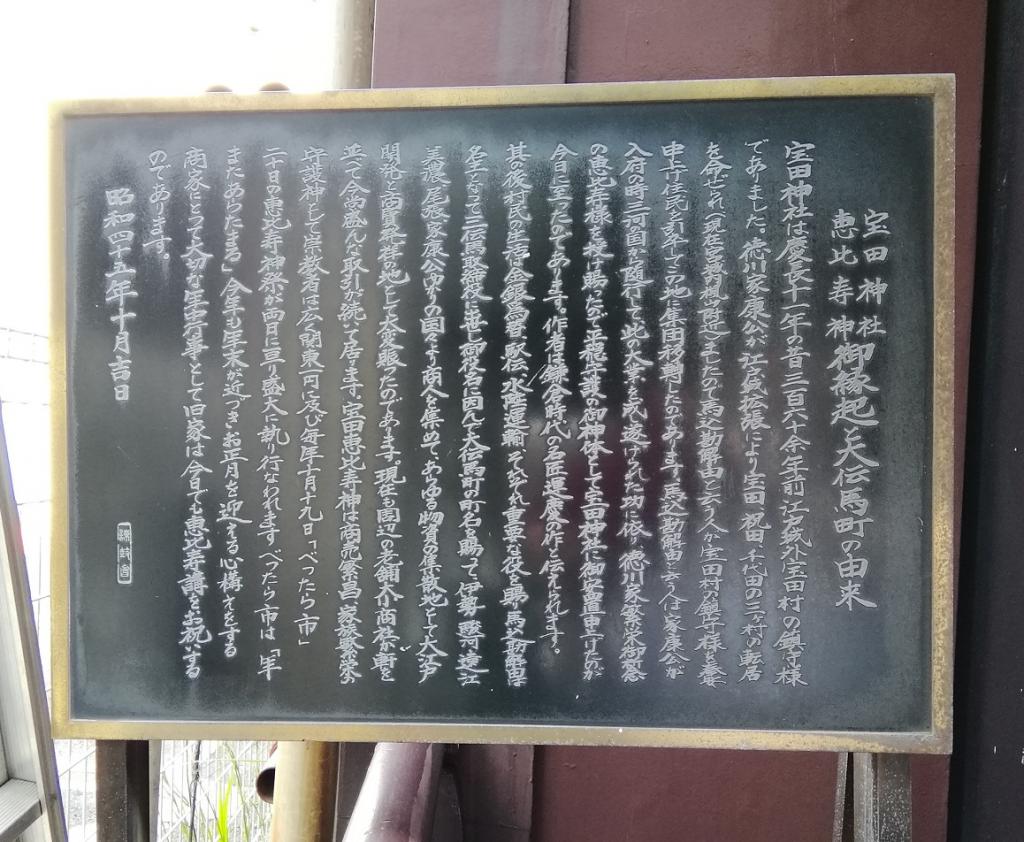 宝田神社
恵比寿神
御縁起と大伝馬町の由来
宝田神社は慶長十一年の昔三百六十余年前江戸城外宝田村の鎮守様
でありました。徳川家康公が江戸城拡張により宝田、祝田、千代田の三ヶ村の転居
を命ぜられ(現在宮城内楓山附近)ましたので馬込勘解由と云う人が宝田村の鎮守様を奉安
申上げ住民を引率してこの地に集団移転したのであります。馬込勘解由と云う人は家康公が
入府の時三河の国から随行して此の大業を成し遂げられた功に依り、徳川家繁栄御祈念
の恵比寿様を授け賜ったので平穏守護の御神体として宝田神社に御安置申上げたのが
今日に至ったのであります。作者は鎌倉時代の名匠運慶の作と伝えられます。
其の後村民の生活は金銀為替、駅伝、水陸運輸、それぞれ重要な役を賜り馬込勘解由は
名主となって三伝馬取締役に出世し御役名に因んで大伝馬町の町名を賜って伊勢、駿河、遠江
美濃、尾張、家康公ゆかりの国々より商人を集めてあらゆる物資の集散地として大江戸
開発と商業発祥の地として大変賑ったのであります。現在も周辺の老舗大小商社が軒を
並べて今尚盛んな取引が続いて居ります。宝田恵比寿神は商売繁昌、家族繁栄の
守護神として崇敬者は広く関東一円に及び毎年十月十九日「べったら市」
二十日の恵比寿神祭が両日に亘り盛大に執り行なわれます べったら市は「年
またあらたまる」今年も年末が近づきお正月を迎える心構えをする
商家にとって大切な年中行事として旧家は今日でも恵比寿講をお祝いする
のであります。
昭和四十五年十月吉日